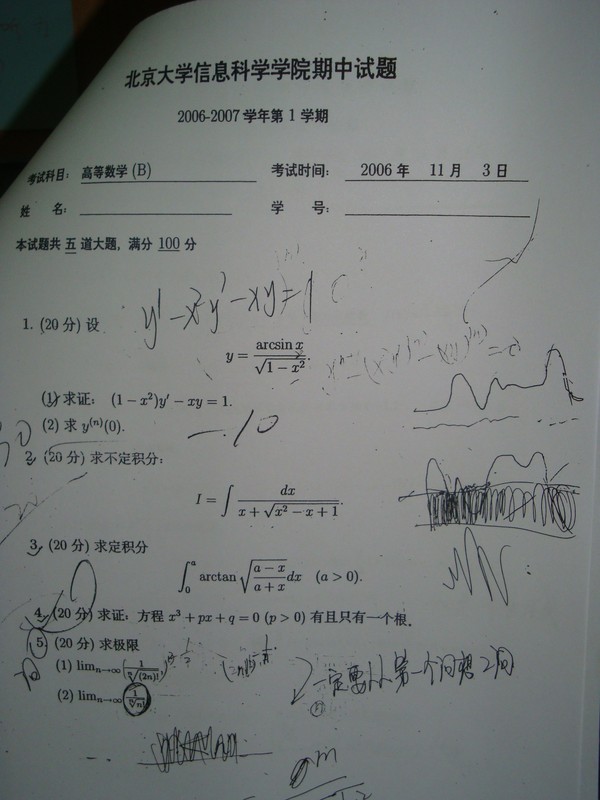 北京大学信息科学学院期中试题
2006-2007 学年第 1 学期
考试科目： 高等数学 (B) 考试时间： 2006 年 11 月 3 日
姓 名： 学 号：
本试题共 五 道大题，满分 100 分
y' - x²y' - xy = 1
1. (20 分) 设
y = arcsin x / √(1 - x²).
(1) 求证： (1 - x²)y' - xy = 1.
(2) 求 y⁽ⁿ⁾(0).
-10
2. (20 分) 求不定积分：
I = ∫ dx / (x + √(x² - x + 1)).
3. (20 分) 求定积分
∫₀ᵃ arctan √((a - x)/(a + x)) dx (a > 0).
4. (20 分) 求证：方程 x³ + px + q = 0 (p > 0) 有且只有一个根.
5. (20 分) 求极限
(1) lim n→∞
(2) lim n→∞
一定要从第一个问想2问